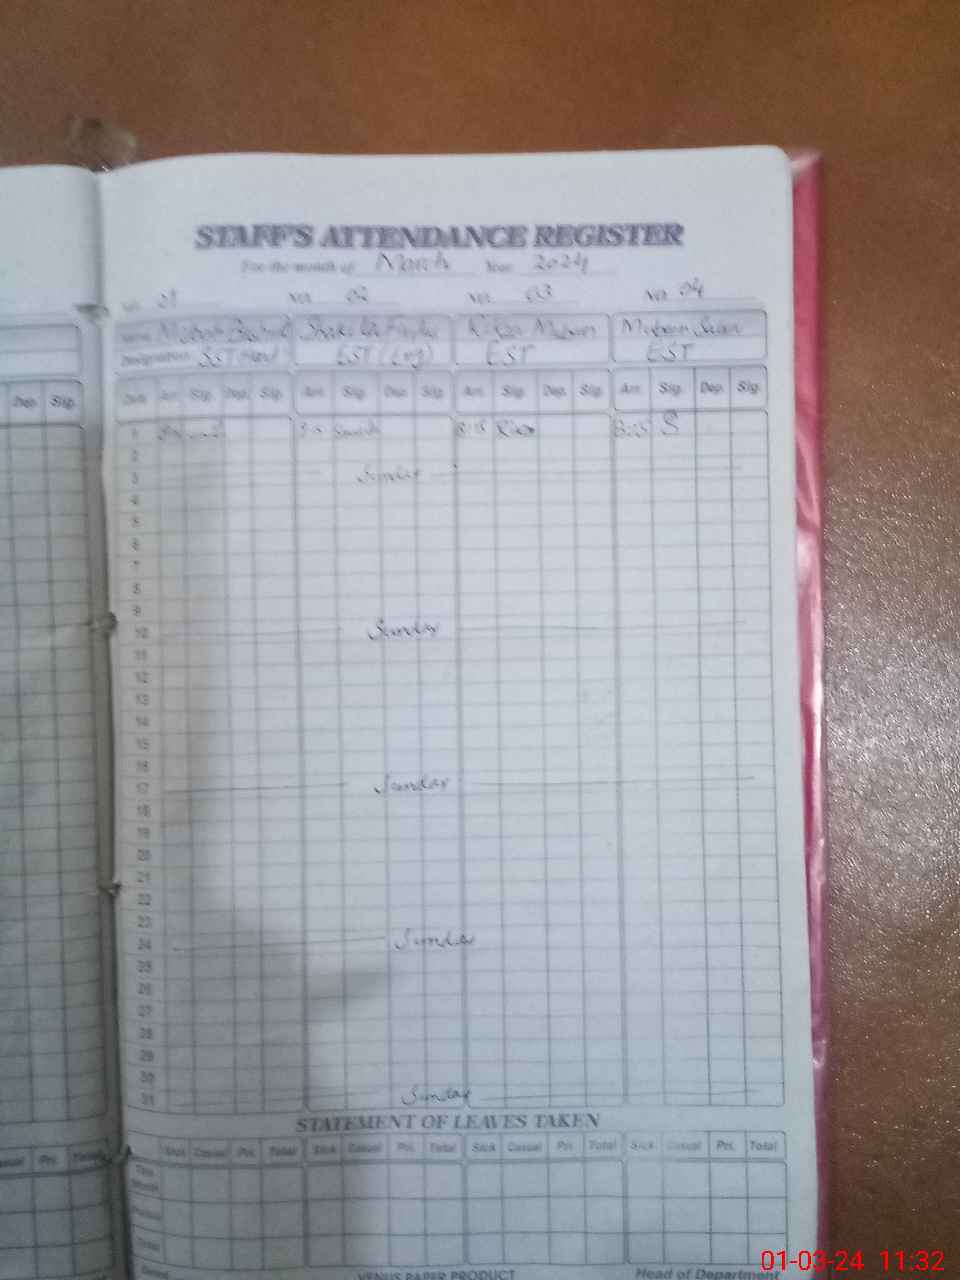 STAFF'S ATTENDANCE REGISTER
For the month of March Year 2024
No. 01 No. 02 No. 03 No. 04
Name Shakila Mubeen
Designation SST EST (Eng) EST EST
Dep. Sig. Date Arr. Sig. Dep. Sig. Arr. Sig. Dep. Sig. Arr. Sig. Dep. Sig. Arr. Sig. Dep. Sig.
1 8:15 8:05 S
2
3 Sunday
4
5
6
7
8
9
10 Sunday
11
12
13
14
15
16
17 Sunday
18
19
20
21
22
23
24 Sunday
25
26
27
28
29
30
31 Sunday
STATEMENT OF LEAVES TAKEN
Casual Pri. Total Sick Casual Pri. Total Sick Casual Pri. Total Sick Casual Pri. Total Sick Casual Pri. Total
This Month
Total
VENUS PAPER PRODUCT Head of Department
01-03-24 11:32